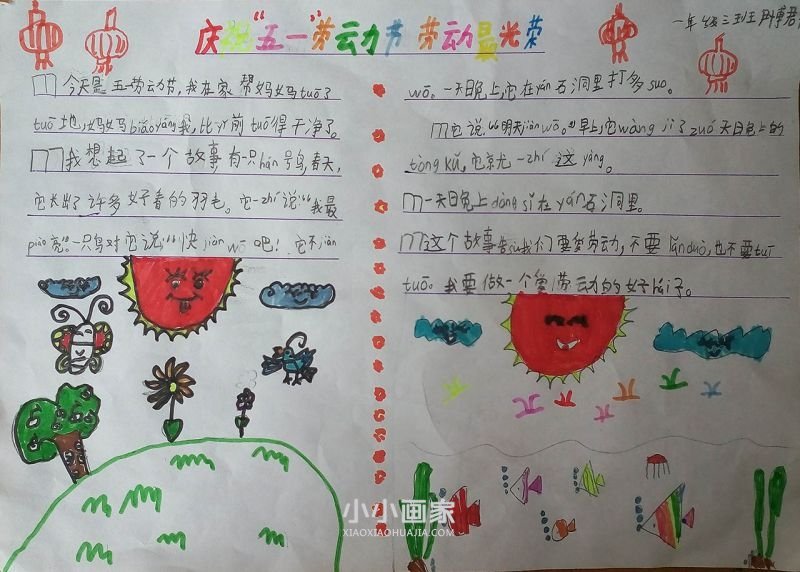 庆祝“五一”劳动节 劳动最光荣
一年级三班
今天是五一劳动节,我在家帮妈妈tuō了
tuō地,妈妈biǎo yáng我,比yǐ前tuō得干净了。
我想起了一个故事有一只hán号鸟,春天,
它长出了许多好看的羽毛。它一zhí说“我最
piào亮”。一只鸟对它说“快jiàn wō吧!它不jiàn
wō。一天晚上,它在yán石洞里打多suo。
它说“明天jiàn wō。”早上,它wàng记了zuó天日晚上的
tòng kǔ,它就一zhí这yàng。
一天日晚上dòng sǐ在yán石洞里。
这个故事告sù我们要爱劳动,不要lǎn duò,也不要tuī
tuō。我要做一个爱劳动的好hái子。
小小画家
XIAOXIAOHUAJIA.COM